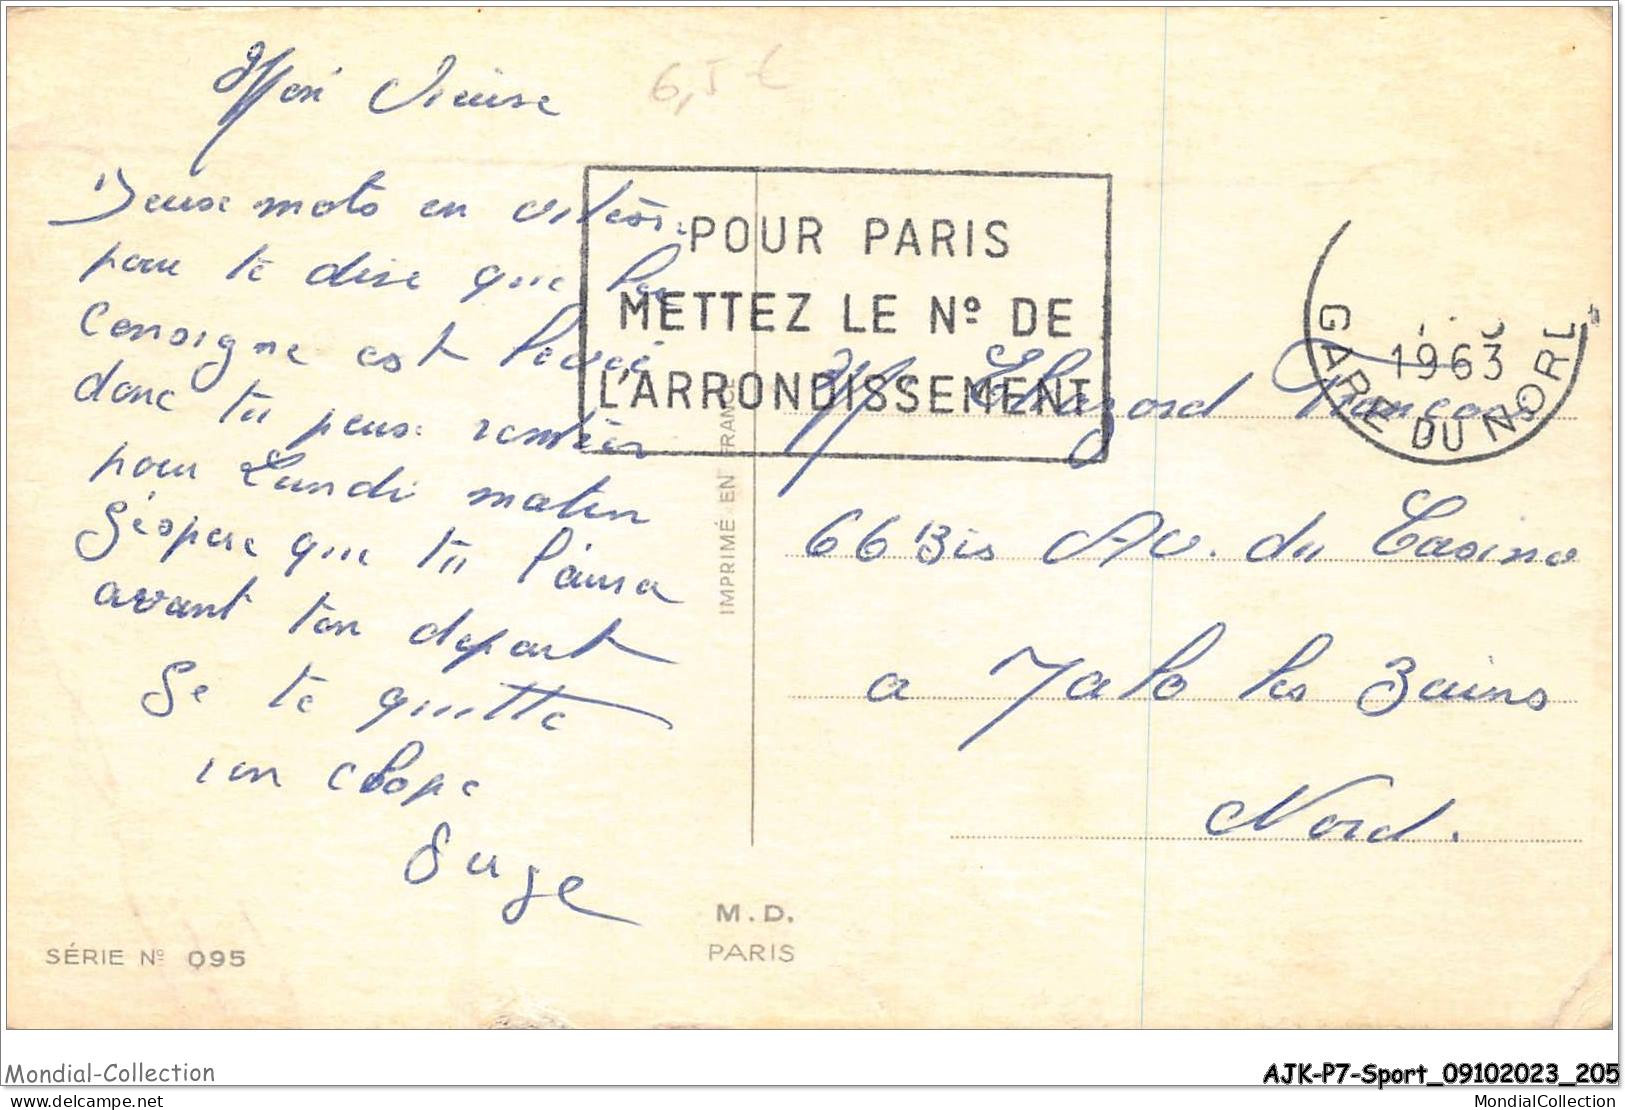 6,5 €
Deuse mots en vitesse
pour te dire que la
Consigne est levée
donc tu peuse rentrer
pour Lundi matin
J'éspere que tu l'aura
avant ton depart
Je te quitte
ton
Serge
POUR PARIS
METTEZ LE Nº DE
L'ARRONDISSEMENT
1963
GARE DU NORD
IMPRIMÉ EN FRANCE
Mr François
66 Bis Av. du Casino
a Malo les Bains
Nord.
SÉRIE Nº 095
M.D.
PARIS
Mondial-Collection
AJK-P7-Sport_09102023_205
delcampe.net
MondialCollection